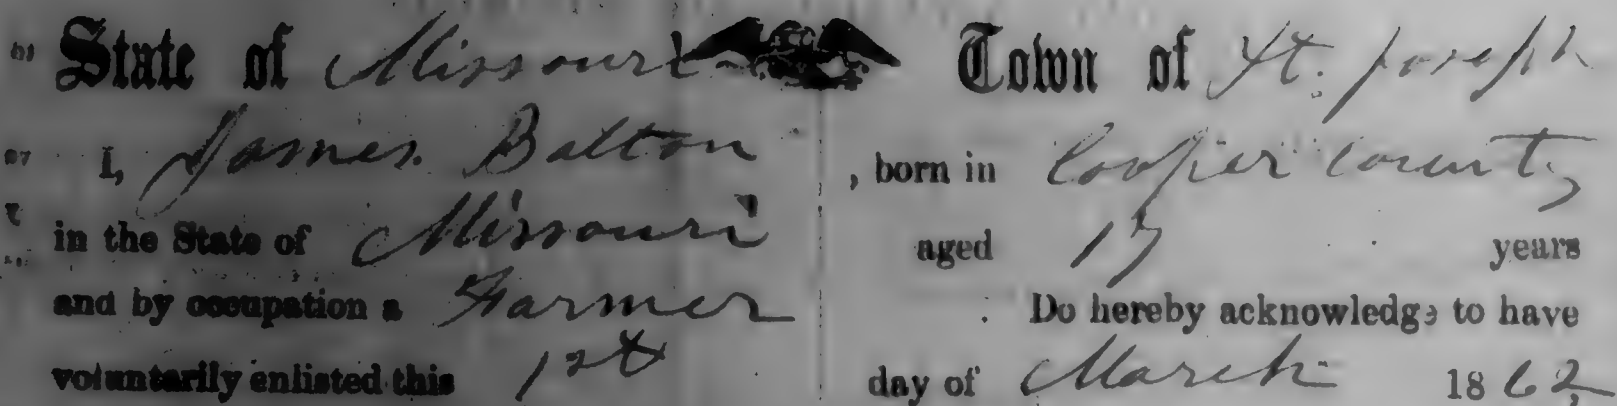 State of Missouri Town of St. Joseph
I, James Bolton, born in Cooper County
in the State of Missouri aged 17 years
and by occupation a Farmer Do hereby acknowledge to have
voluntarily enlisted this 1st day of March 1862,